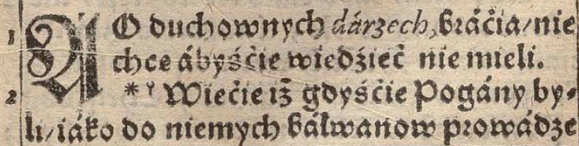 1 AO duchownych dárzech, bráćia/ nie
chce ábyśćie wiedźieć nie mieli.
2 *¹ Wiećie iż gdyśćie Pogány by-
li/ iáko do niemych báłwanow prowádze